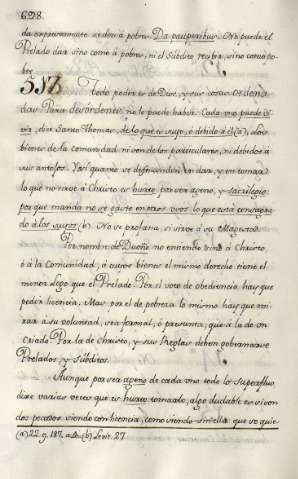 628.
da expresamente se da à pobre: Da pauperibus. No puede el
Prelado dar sino como à pobre, ni el Subdito recibir, sino como po-
bre.
513 Todo poder es de Dios, y sus cosas ordena
das. Para desordenes, no le puede haber. Cada uno puede
dice Santo Thomas, de lo que es suyo, ò debido à èl (a), los
bienes de la Comunidad ni son de los particulares, ni debidos à
sus antojos. Y assi quanto se desmanden en dar, y en tomar
lo que no toca à Christo es hurto por ser ageno, y sacrilegio;
por que manda no se gaste en otros usos lo que està consagra-
do à los suyos (b). No se profana, si sirve à su Magestad.
Por nombre de Dueño no entiendo sino à Christo,
ò à la Comunidad, à cuyos bienes el mismo derecho tiene el
menor Lego que el Prelado. Por el voto de obediencia hay que
pedir licencia. Mas por el de pobreza lo mismo hay que mi-
rar à su voluntad, sea formal, ò presunta, que à la de un
Criado. Por la de Christo, y sus Reglas deben gobernarse
Prelados, y Subditos.
Aunque por ser ageno de cada uno todo lo superfluo
dixe varias veces que es hurto tomarlo, algo dudable es si son
dos pecados siendo con licencia, como siendo sin ella que se quie-
(a) 22. q. 187. (b) Levit. 27